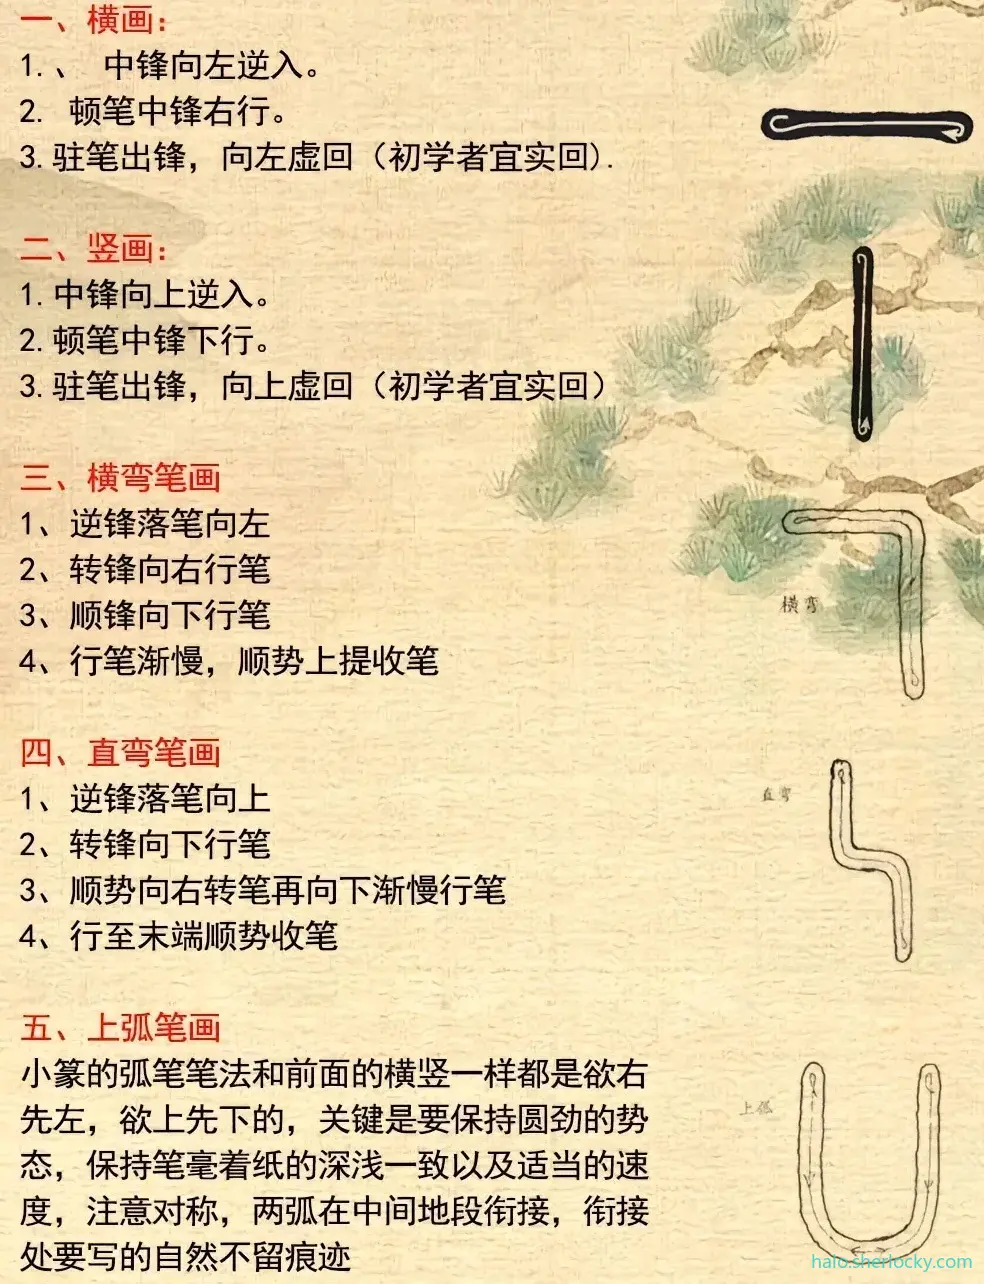 一、横画：
1.、 中锋向左逆入。
2. 顿笔中锋右行。
3.驻笔出锋，向左虚回（初学者宜实回).
二、竖画：
1.中锋向上逆入。
2.顿笔中锋下行。
3.驻笔出锋，向上虚回（初学者宜实回）
三、横弯笔画
1、逆锋落笔向左
2、转锋向右行笔
3、顺锋向下行笔
横弯
4、行笔渐慢，顺势上提收笔
四、直弯笔画
直弯
1、逆锋落笔向上
2、转锋向下行笔
3、顺势向右转笔再向下渐慢行笔
4、行至末端顺势收笔
五、上弧笔画
小篆的弧笔笔法和前面的横竖一样都是欲右
先左，欲上先下的，关键是要保持圆劲的势
态，保持笔毫着纸的深浅一致以及适当的速
度，注意对称，两弧在中间地段衔接，衔接
处要写的自然不留痕迹
上弧
halo.sherlocky.com